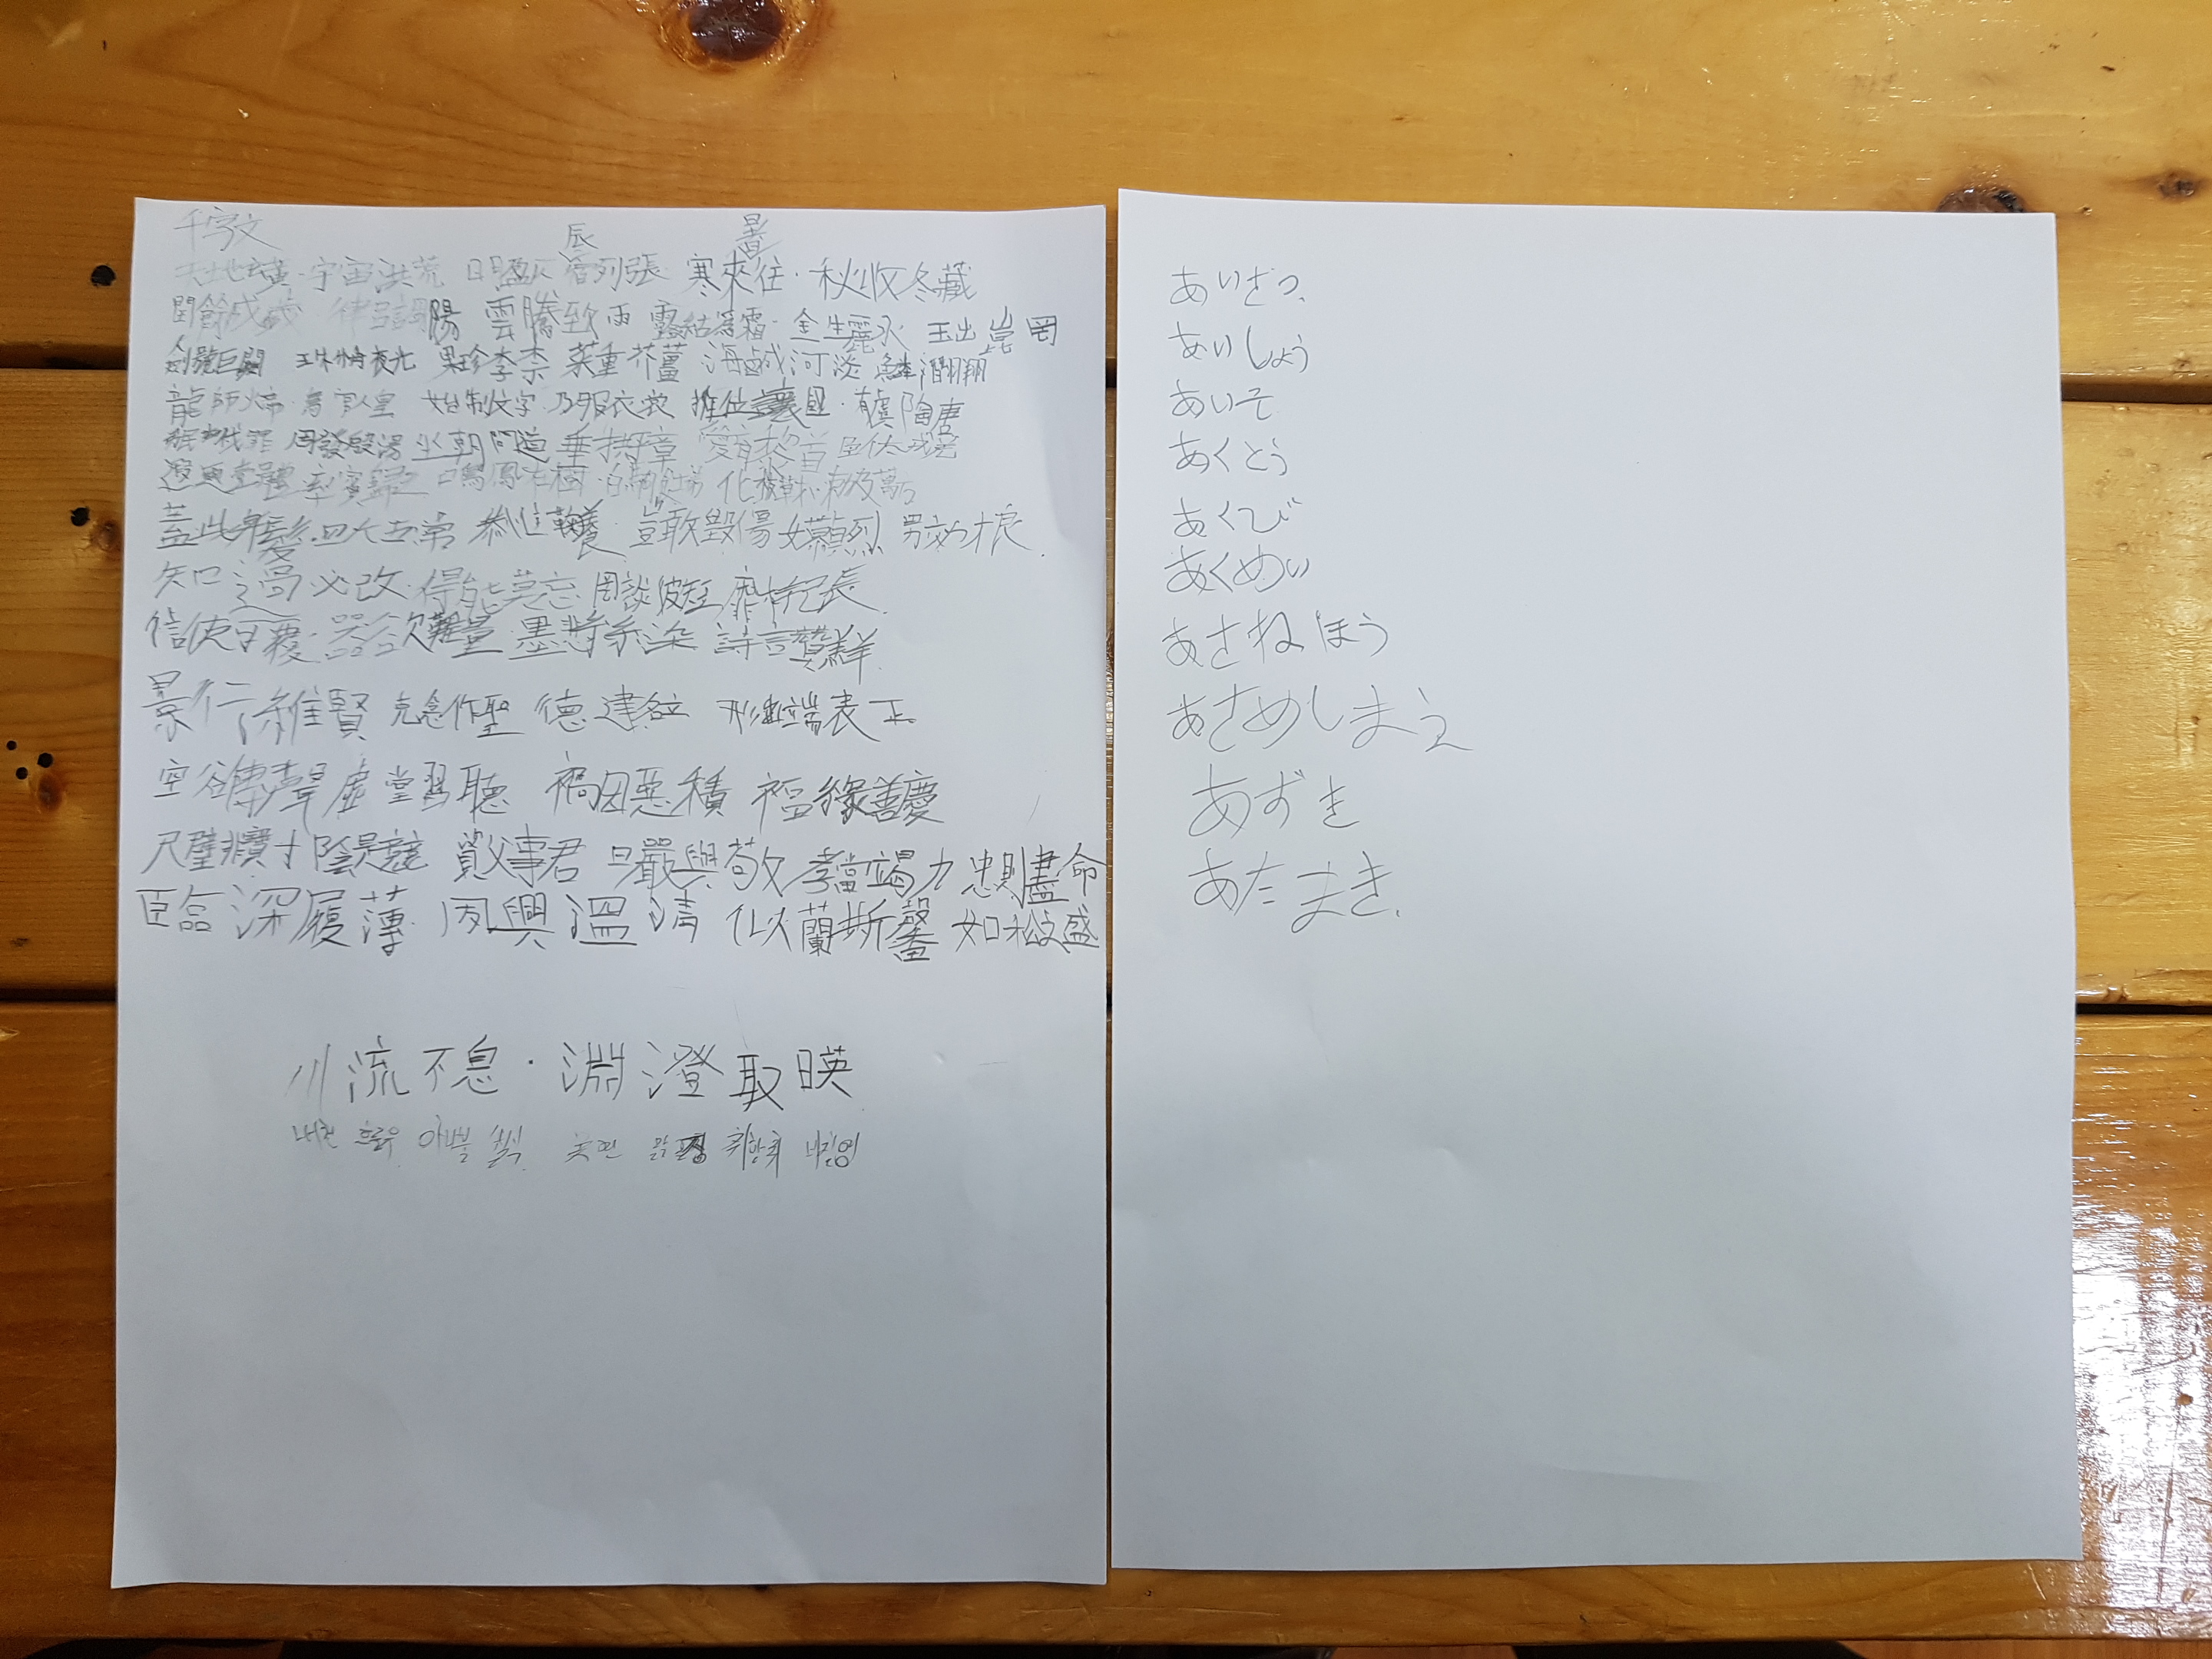 千字文
辰 暑
天地玄黃·宇宙洪荒 日月盈仄 宿列張 寒來往·秋收冬藏
閏餘成歲 律呂調陽 雲騰致雨 露結爲霜·金生麗水 玉出崑岡
劍號巨闕 珠稱夜光 果珍李柰 菜重芥薑 海鹹河淡 鱗潛羽翔
龍師火帝·鳥官人皇 始制文字 乃服衣裳 推位讓國·有虞陶唐
弔民伐罪 周發殷湯 坐朝問道 垂拱平章 愛育黎首 臣伏戎羌
遐邇壹體 率賓歸 鳴鳳在樹·白駒食場 化被草木 賴及萬
蓋此身髮 四大五常 恭惟鞠養·豈敢毀傷 女慕貞烈 男效才良
知過必改·得能莫忘 罔談彼短 靡恃己長
信使可覆·器欲難量 墨悲絲染 詩讚羔羊
景行維賢 克念作聖 德建名立 形端表正
空谷傳聲 虛堂習聽 禍因惡積 福緣善慶
尺璧非寶 寸陰是競 資父事君 曰嚴與敬 孝當竭力 忠則盡命
臨深履薄 夙興溫凊 似蘭斯馨 如松之盛
川流不息·淵澄取暎
내천 흐를유 아니불 쉴식 못연 맑을징 취할취 비칠영
あいさつ
あいしょう
あいそ
あくとう
あくび
あくめい
あさねぼう
あさめしまえ
あずき
あたまき